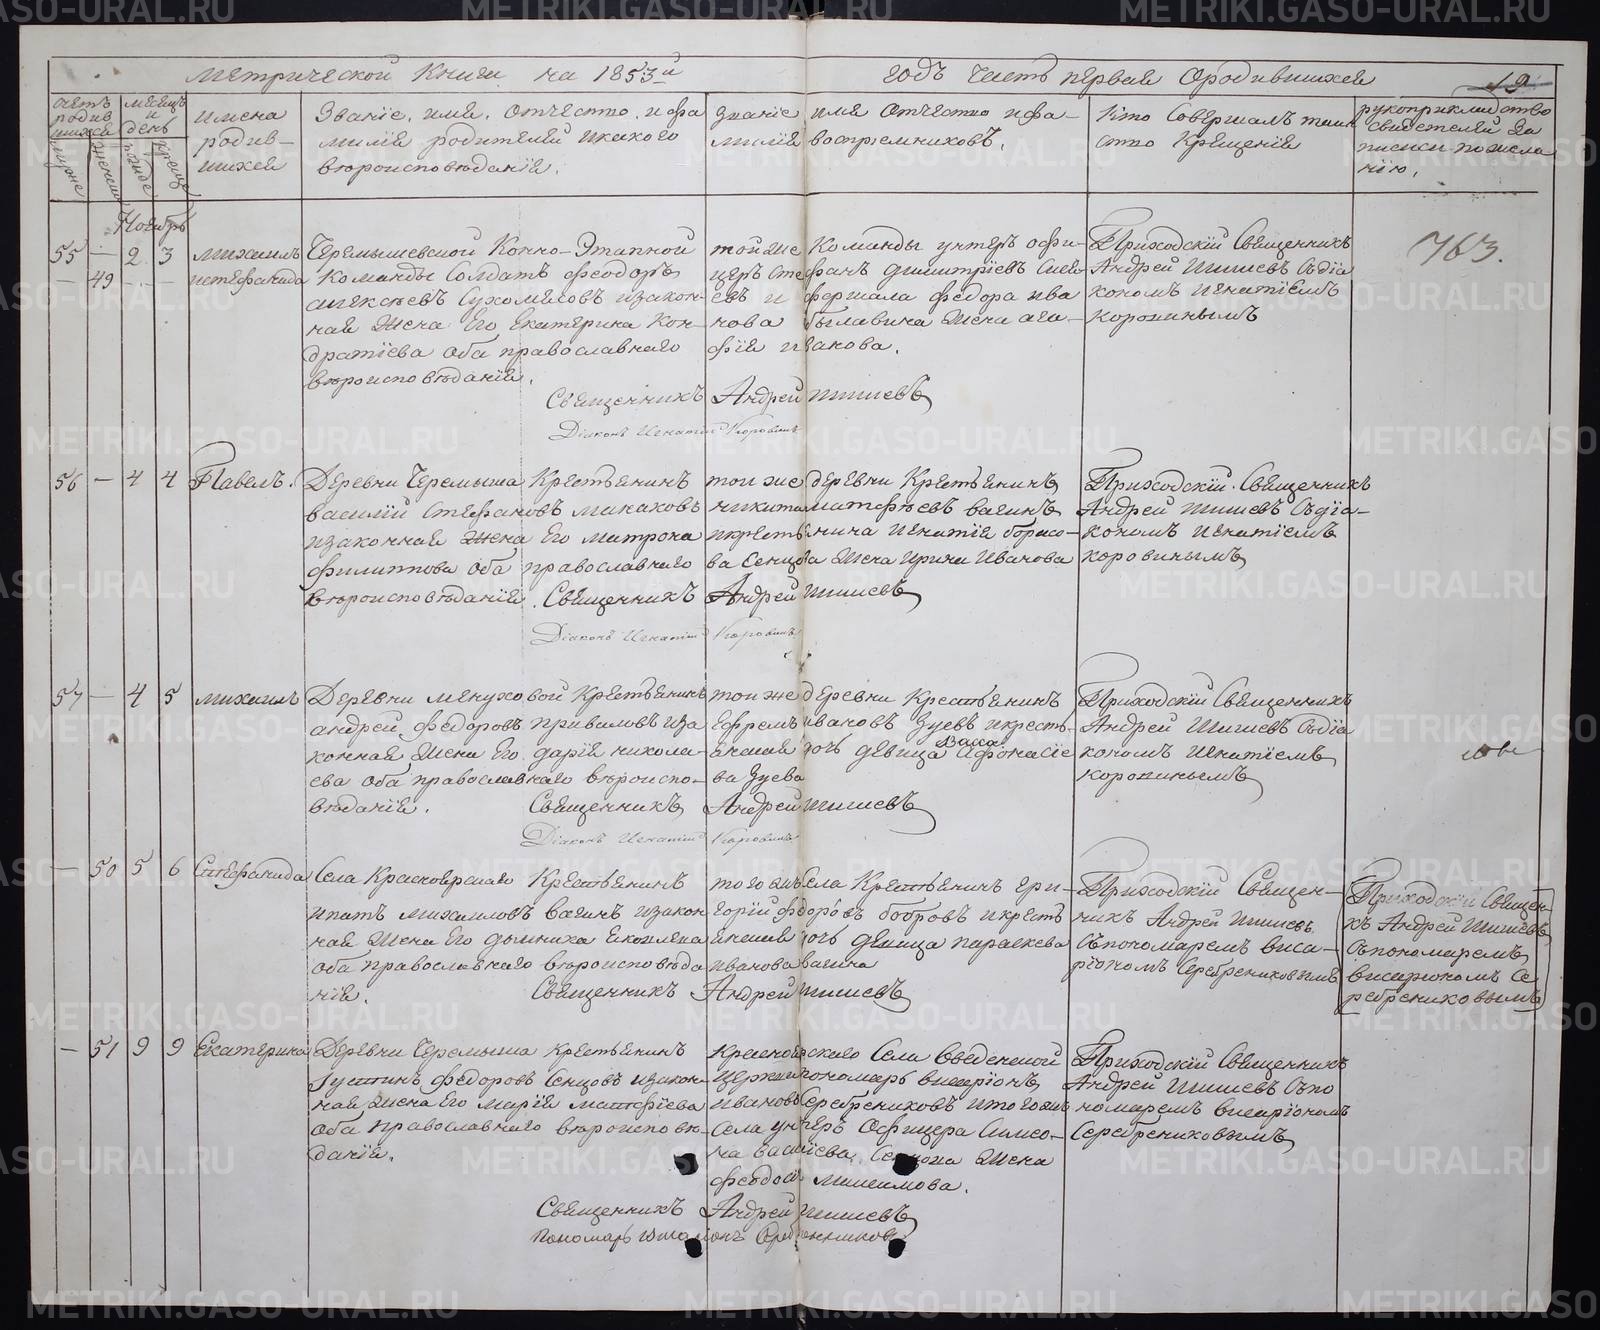 Метрической Книги на 1853-й годъ Часть первая О родившихся
19
счетъ родившихся
мужска
женска
месяцъ и день
рожде
креще
имена родив-
шихся
Званіе, имя, отчество, и фа-
милія родителей и какого
вѣроисповѣданія.
Званіе имя отчество и фа-
милія воспріемниковъ.
Кто Совершалъ таин-
ство Крещенія
рукоприкладство
свидетелей за
писи по жела
нію.
Ноябрь
55 — 2 3
— 49 — —
михаилъ
и стефанида
Черемышевской Конно-Этапной
Команды Солдатъ Феодоръ
алексѣевъ Сухомясовъ и закон-
ная жена Его Екатерина Кон-
дратіева оба православнаго
вѣроисповѣданія.
той же Команды унтеръ офи-
церъ Стефанъ димитріевъ
и фершала федора ива
нова былавина жена ага-
фія иванова.
Приходскій Священникъ
Андрей Шишевъ съ діа
кономъ игнатіемъ
коровинымъ
763.
Священникъ Андрей Шишевъ
Діаконъ Игнатій Коровинъ
56 — 4 4
Павелъ.
Деревни Черемыша Крестьянинъ
василій стефановъ макаховъ
и законная жена Его матрона
филиппова оба православнаго
вѣроисповѣданія.
той же деревни Крестьянинъ
никита матфѣевъ вагинъ
и крестьянина игнатія борисо-
ва Сенцова жена ирина иванова
Приходскій Священникъ
Андрей Шишевъ съ діа-
кономъ игнатіемъ
коровинымъ
Священникъ Андрей Шишевъ
Діаконъ Игнатій Коровинъ
57 — 4 5
михаилъ
Деревни мануховой Крестьянинъ
андрей федоровъ приваловъ и за
конная жена Его дарія никола-
ева оба православнаго вѣроиспо-
вѣданія.
той же деревни Крестьянинъ
Ефремъ ивановъ Зуевъ и кресть-
янская дочь девица Васса Афонасіе
ва Зуева
Приходскій Священникъ
Андрей Шишевъ съ діа
кономъ игнатіемъ
коровинымъ
Священникъ Андрей Шишевъ
Діаконъ Игнатій Коровинъ
— 50 5 6
Стефанида
Села Красноярскаго Крестьянинъ
ипатъ михаиловъ вагинъ и закон
ная жена Его домника
оба православнаго вѣроисповѣда
нія.
того жъ Села Крестьянинъ гри-
горій федоровъ бобровъ и кресть
янская дочь девица параскева
иванова вагина
Приходскій Священ-
никъ Андрей Шишевъ
съ пономаремъ виса-
ріономъ Серебрениковымъ
Приходскій Священ-
къ Андрей Шишевъ
съ пономаремъ
висаріономъ Се
ребрениковымъ
Священникъ Андрей Шишевъ
— 51 9 9
Екатерина
Деревни Черемыша крестьянинъ
Густинъ федоровъ Сенцовъ и закон-
ная жена Его марія матфіева
оба православнаго вѣроисповѣ-
данія.
Красноярскаго Села Введенской
церкви пономарь висаріонъ
ивановъ Серебрениковъ и того жъ
Села унтеръ Офицера Симео-
на васиіева жена
феодосія максимова.
Приходскій Священникъ
Андрей Шишевъ съ по
номаремъ висаріономъ
Серебрениковымъ
Священникъ Андрей Шишевъ
Пономарь Серебренниковъ
METRIKI.GASO-URAL.RU